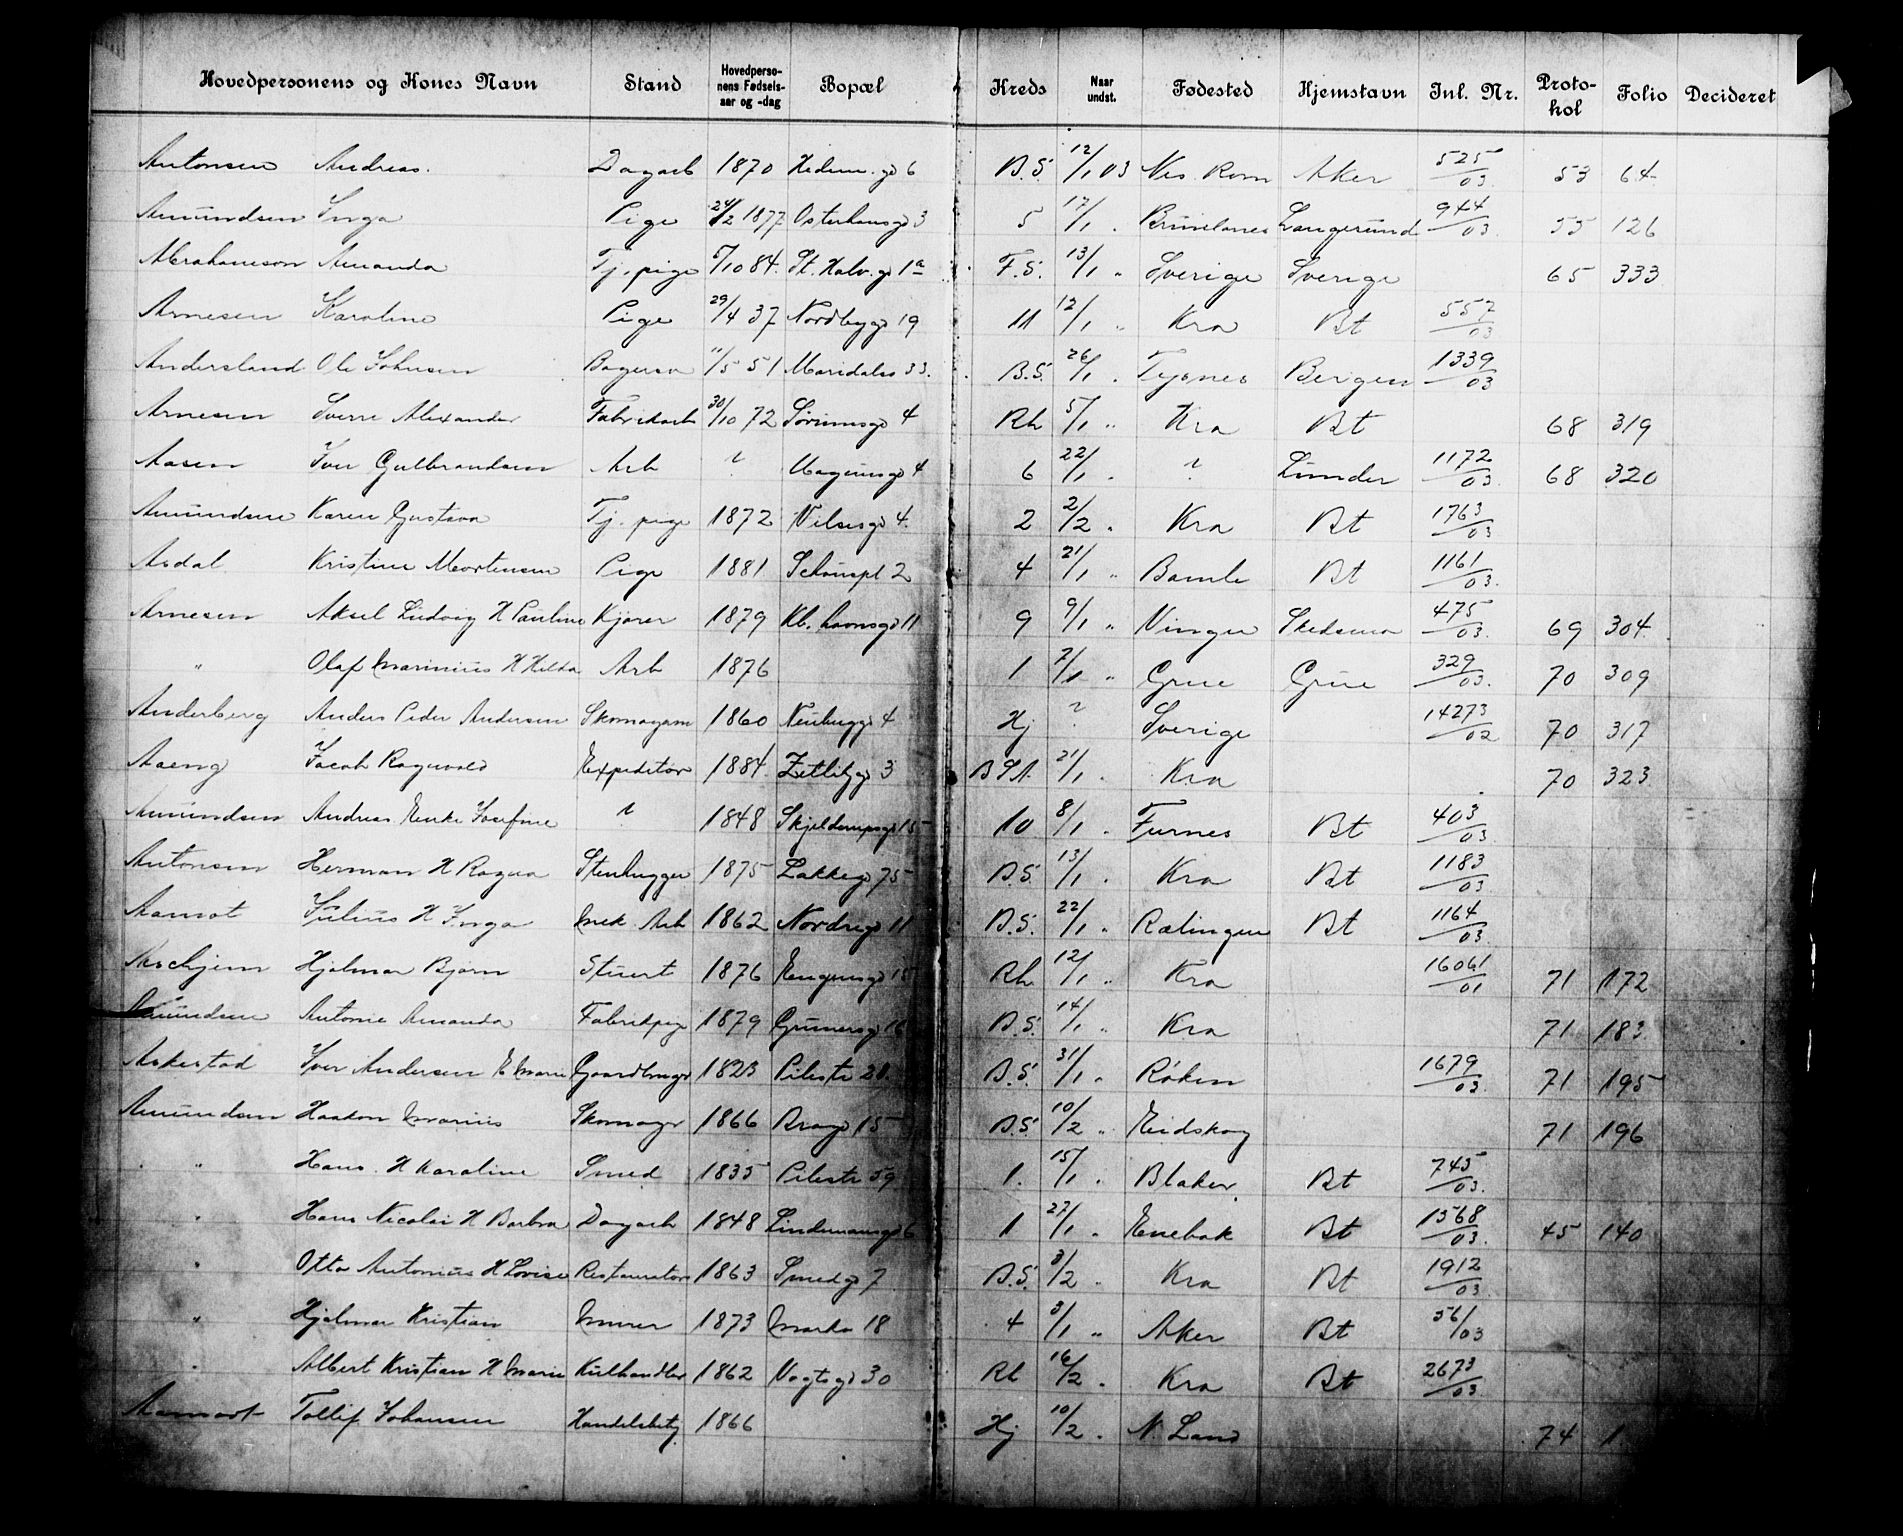 Hovedpersonens og Kones Navn Stand Hovedperso- nens Fødsels- aar og -dag Bopæl Kreds Naar undst. Fødested Hjemstavn Jnl. Nr. Proto- kol Folio Decideret
Antonsen Andreas. Dagarb 1870 Hedem.gd 6 B.S. 12/1 03 Nes. Rom Aker 525/03 53 64
Amundsen Inga Pige 24/2 1877 Osterhausgd 3 5 12/1 " Brunlanes Langesund 944/03 55 126
Abrahamson Amanda Tj.pige 5/10 84. St. Halv.gd 1a F.S. 13/1 " Sverige Sverige 65 333
Arnesen Karoline Pige 29/4 37 Nordbygd 19 11 12/1 " Kra Bt 557/03
Andersland Ole Johnsen Bagersv 11/5 51 Maridalsv 33. B.S. 26/1 " Tysnes Bergen 1339/03
Arnesen Sverre Alexander Fabrikarb 30/10 72 Sørumsgd 4 Rh 5/1 " Kra Bt 68 319
Aasen Iver Gulbrandsen Arb ? 4 6 22/1 " ? Lunder 1172/03 68 320
Amundsen Karen Gustava Tj. pige 1872 Nilsesgd 4. 2 2/2 " Kra Bt 1763/03
Asdal Kristine Mortensen Pige 1881 Schouspl 2 4 21/1 " Bamle Bt 1161/03.
Arnesen Aksel Ludvig H Pauline Kjører 1879 Kb.havnsgd 11 9 9/1 " Vinger Skedsmo 475/03. 69 304
" Olaf Marinius H Hilda Arb 1876 1 7/1 " Grue Grue 329/03. 70 309
Anderberg Anders Peder Andersen Skomagerm 1860 Neubergd 4 Hj ? Sverige 14273/02 70 317
Aaeng Jacob Ragnvald Expeditør 1884 Zetlitzgd 3 B St. 21/1 " Kra 70 323
Amundsen Andreas Enke Josefine ? 1848 Skjeldrupsgd 15 10 8/1 " Furnes Bt 403/03
Antonsen Herman H Ragna Stenhugger 1875 Lakkegd 75 B.S. 13/1 " Kra Bt 1183/03
Aamot Julius H Inga Mek Arb 1862 Nordregd 11 B.S. 22/1 " Rælingen Bt 1164/03
Askhjem Hjalmar Bjørn Stuert 1876 Rh 12/1 " Kra 16061/01 71 172
Amundsen Antonie Amanda Fabrikpige 1879 Grünersgd 16 B.S. 14/1 " Kra 71 183
Askestad Iver Andersen E Marie Gaardbruger 1823 Pilestr 28. B.S. 31/1 " Røken 1679/03. 71 195
Amundsen Haakon Marius Skomager 1866 Bragd 15 B.S. 10/2 " Eidskog 71 196
" Hans. H Karoline Smed 1835 Pilestr 59 1. 15/1 " Blaker Bt 745/03.
" Hans Nicolai H Barbra Dagarb 1848 Lindemansgd 6 1 27/1 " Enebak Bt 1368/03. 45 140
" Otto Antonius H Lovise Restauratør 1863 Smedgd 7 B.S. 3/2 " Kra Bt 1912/03
" Hjalmar Kristian Murer 1873 Markv 18 4 3/1 " Aker Bt 56/03
" Albert Kristian H Marie Kulhandler 1862 Vogtsgd 30 Rh 16/2 " Kra Bt 2673/03
Aamodt Tollef Johansen Handelsbetj 1866 Hj 10/2 " N. Land 74 1